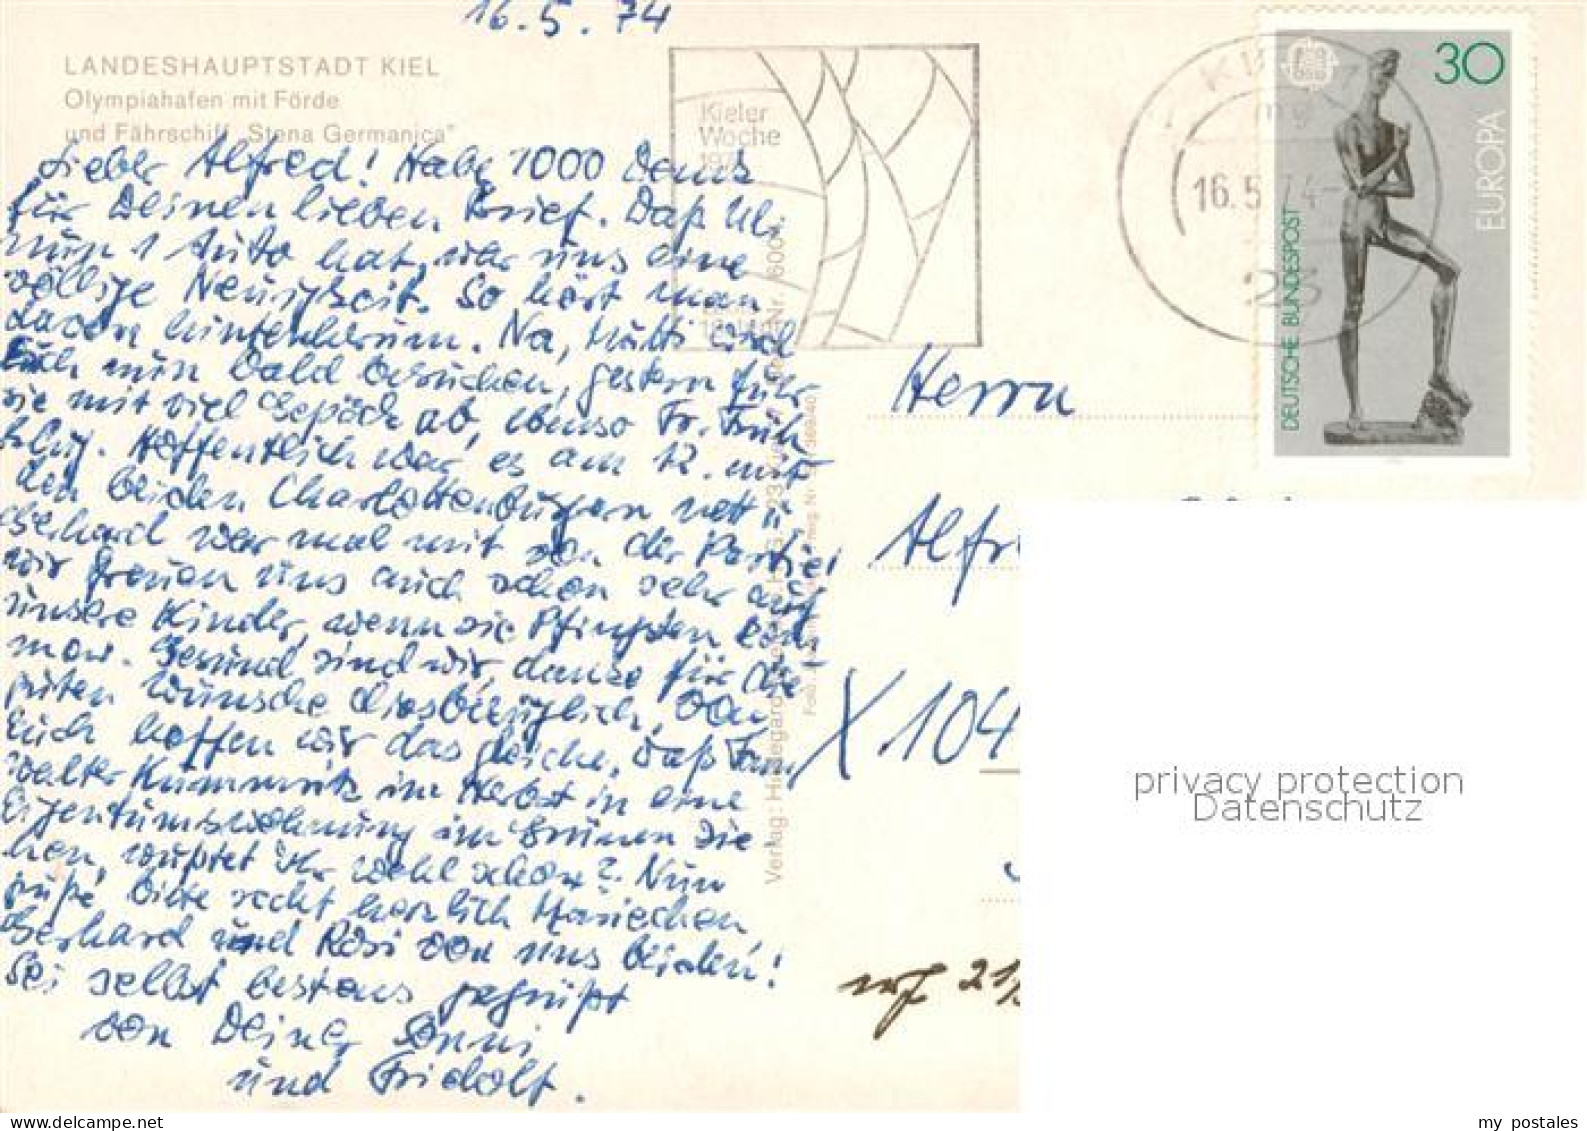 16.5.74
LANDESHAUPTSTADT KIEL
Olympiahafen mit Förde
und Fährschiff „Stena Germanica"
Kieler
Woche
16.5.74-
23
30
EUROPA
DEUTSCHE BUNDESPOST
Lieber Alfred! Habe 1000 Dank
für Deinen lieben Brief. Daß Uli
nun 1 Auto hat, war uns eine
völlige Neuigkeit. So hört man
davon hintenherum. Na, Mutti wird
Euch nun bald besuchen, gestern fuhr
sie mit viel Gepäck ab, ebenso Fr. Früh
Hoffentlich war es am 12. mit
den beiden Charlottenburgern nett u
Gerhard war mal mit von der Partie!
Wir freuen uns auch schon sehr auf
unsere Kinder, wenn sie Pfingsten kom
men. Gesund sind wir, danke für die
guten Wünsche diesbezüglich, von
Euch hoffen wir das gleiche. Daß Fam.
Walter im Herbst in eine
Eigentumswohnung im Grünen zie
hen, wußtet Ihr wohl schon? Nun
grüße bitte recht herzlich Mariechen
Gerhard und Rosi von uns beiden!
Sei selbst bestens gegrüßt
von Deiner
und Fridolf.
Herrn
Alfr
X 104
21/5
Verlag: Hildegard
privacy protection
Datenschutz
my postales